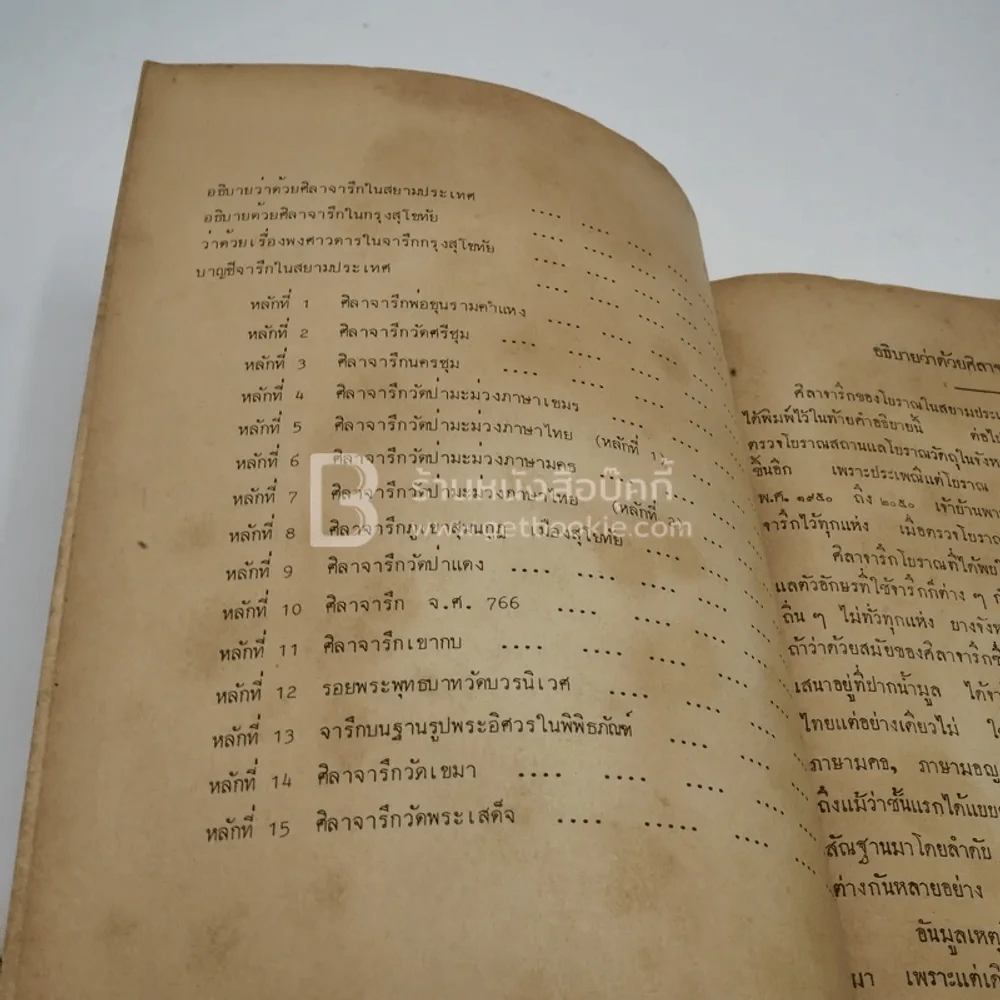 อธิบายว่าด้วยศิลาจารึกในสยามประเทศ .... .... ....
อธิบายด้วยศิลาจารึกในกรุงสุโขทัย .... .... ....
ว่าด้วยเรื่องพงศาวดารในจารึกกรุงสุโขทัย .... .... ....
บาญชีจารึกในสยามประเทศ .... .... ....
หลักที่ 1 ศิลาจารึกพ่อขุนรามคำแหง .... .... ....
หลักที่ 2 ศิลาจารึกวัดศรีชุม .... .... ....
หลักที่ 3 ศิลาจารึกนครชุม .... .... ....
หลักที่ 4 ศิลาจารึกวัดป่ามะม่วงภาษาเขมร .... ....
หลักที่ 5 ศิลาจารึกวัดป่ามะม่วงภาษาไทย (หลักที่ 1)
หลักที่ 6 ศิลาจารึกวัดป่ามะม่วงภาษามคธ .... ....
หลักที่ 7 ศิลาจารึกวัดป่ามะม่วงภาษาไทย (หลักที่
หลักที่ 8 ศิลาจารึกภูเขาสุมนกูฏ เมืองสุโขทัย ....
หลักที่ 9 ศิลาจารึกวัดป่าแดง .... .... ....
หลักที่ 10 ศิลาจารึก จ.ศ. 766 .... .... ....
หลักที่ 11 ศิลาจารึกเขากบ .... .... ....
หลักที่ 12 รอยพระพุทธบาทวัดบวรนิเวศ .... ....
หลักที่ 13 จารึกบนฐานรูปพระอิศวรในพิพิธภัณฑ์ .... ....
หลักที่ 14 ศิลาจารึกวัดเขมา .... .... ....
หลักที่ 15 ศิลาจารึกวัดพระเสด็จ .... ..... ....
ร้านหนังสือบุ๊คกี้
อธิบายว่าด้วยศิลาจ
ศิลาจารึกของโบราณในสยามประเ
ได้พิมพ์ไว้ในท้ายคำอธิบายนี้ ต่อไป
ตรวจโบราณสถานแลโบราณวัตถุในจังห
ขึ้นอีก เพราะประเพณีแต่โบราณ
พ.ศ. ๑๙๕๐ ถึง ๒๐๕๐ เจ้าบ้านพา
จารึกไว้ทุกแห่ง เมื่อตรวจโบราณ
ศิลาจารึกโบราณที่ได้พบ
แลตัวอักษรที่ใช้จารึกก็ต่าง ๆ กั
ถิ่น ๆ ไม่ทั่วทุกแห่ง บางจังห
ถ้าว่าด้วยสมัยของศิลาจารึกซึ่
เสนาอยู่ที่ปากน้ำมูล ได้จา
ไทยแต่อย่างเดียวไม่ ใ
ภาษามคธ, ภาษามอญ
ถึงแม้ว่าชั้นแรกได้แบบ
สัณฐานมาโดยลำดับ
ต่างกันหลายอย่าง
อันมูลเหตุ
มา เพราะแต่เดิ